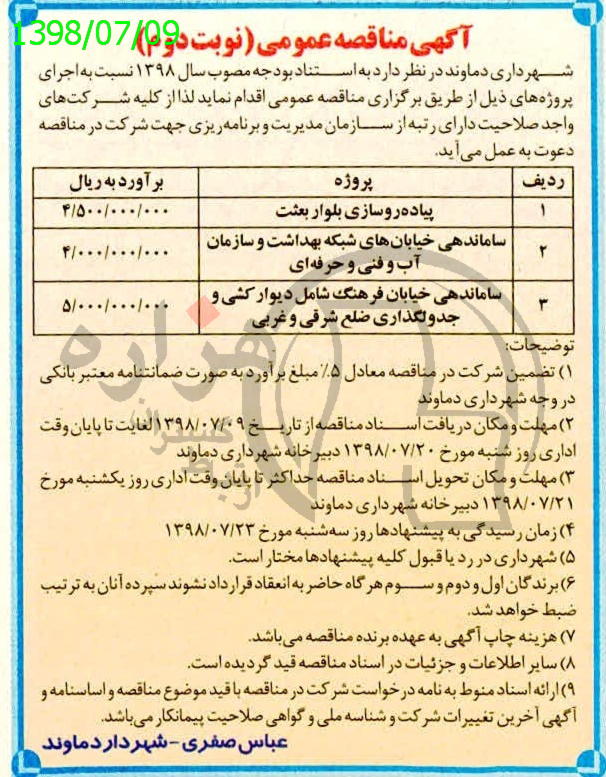 1398/07/09
آگهی مناقصه عمومی (نوبت دوم)
شهرداری دماوند در نظر دارد به استناد بودجه مصوب سال ۱۳۹۸ نسبت به اجرای
پروژه‌های ذیل از طریق برگزاری مناقصه عمومی اقدام نماید لذا از کلیه شرکت‌های
واجد صلاحیت دارای رتبه از سازمان مدیریت و برنامه‌ریزی جهت شرکت در مناقصه
دعوت به عمل می‌آید.
ردیف پروژه برآورد به ریال
۱ پیاده‌روسازی بلوار بعثت ۴/۵۰۰/۰۰۰/۰۰۰
۲ ساماندهی خیابان‌های شبکه بهداشت و سازمان
آب و فنی و حرفه‌ای ۴/۰۰۰/۰۰۰/۰۰۰
۳ ساماندهی خیابان فرهنگ شامل دیوارکشی و
جدولگذاری ضلع شرقی و غربی ۵/۰۰۰/۰۰۰/۰۰۰
توضیحات:
۱) تضمین شرکت در مناقصه معادل ۵٪ مبلغ برآورد به صورت ضمانتنامه معتبر بانکی
در وجه شهرداری دماوند
۲) مهلت و مکان دریافت اسناد مناقصه از تاریخ ۱۳۹۸/۰۷/۰۹ لغایت تا پایان وقت
اداری روز شنبه مورخ ۱۳۹۸/۰۷/۲۰ دبیرخانه شهرداری دماوند
۳) مهلت و مکان تحویل اسناد مناقصه حداکثر تا پایان وقت اداری روز یکشنبه مورخ
۱۳۹۸/۰۷/۲۱ دبیرخانه شهرداری دماوند
۴) زمان رسیدگی به پیشنهادها روز سه‌شنبه مورخ ۱۳۹۸/۰۷/۲۳
۵) شهرداری در رد یا قبول کلیه پیشنهادها مختار است.
۶) برندگان اول و دوم و سوم هرگاه حاضر به انعقاد قرارداد نشوند سپرده آنان به ترتیب
ضبط خواهد شد.
۷) هزینه چاپ آگهی به عهده برنده مناقصه می‌باشد.
۸) سایر اطلاعات و جزئیات در اسناد مناقصه قید گردیده است.
۹) ارائه اسناد منوط به نامه درخواست شرکت در مناقصه با قید موضوع مناقصه و اساسنامه و
آگهی آخرین تغییرات شرکت و شناسه ملی و گواهی صلاحیت پیمانکار می‌باشد.
عباس صفری - شهردار دماوند
هزاره